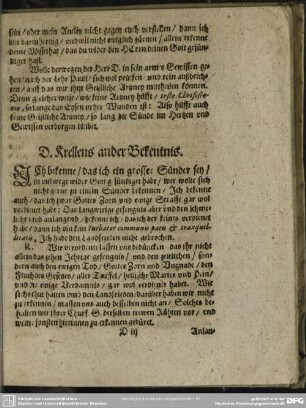 sein / oder mein Antlitz nicht gegen euch verstellen / dann ich
bin barmhertzig / und wil nicht ewiglich zürnen / allein erkenne
deine Missethat / das du wider den HErrn deinen Gott gesün-
diget hast.
Wolle derwegen der Herr D. in sein arm Gewissen ge-
hen / nach der Lehr Pauli / sich wol prüfen und rein ausbeich-
ten / auff das wir ihm Geistliche Artzney mittheilen können.
Denn gleicher weise / wie keine Artzney hilfft /
so lange das Eysen in der Wunden ist: Also hilfft auch
keine Geistliche Artzney / so lang die Sünde im Hertzen und
Gewissen verborgen bleibet.
D. Krellens ander Bekentnis.
ICh bekenne / das ich ein grosser Sünder sey /
in viel wege wider Gott gesündiget habe / wer wolte sich
nicht gerne zu einem Sünder bekennen / Ich bekenne
auch / das ich zwar Gottes Zorn und ewige Straffe gar wol
verdienet habe: Das langwirige gefengnis aber und den jehmer-
liche end anlangend / bekenne ich / das ich der keins verdienet
habe / dann ich bin kein Turbator communis pacis & tranquil-
litatis, Ich habe den Landfrieden nicht gebrochen.
R. Wir wöllen euch lassen uns bedüncken das ihr nicht
allein das zehen Jehrige gefengnis / und den zeitlichen / son-
dern auch den ewigen Tod / Gottes Zorn und Ungnade / den
Fluch des Gesetzes / aller Teuffel / hellische Marter und Pein /
und die ewige Verdamnis / gar wol verdienet habet. Wie
sichs thut halten umb den Landfrieden / darüber haben wir nicht
zu erkennen / massen uns auch desselben nicht an / Solches be-
halten wir ihrer Churf. G. derselben trewen Räthen vor / und
wem sonsten hierinnen zu erkennen gebüret.
D iij
Anlan-